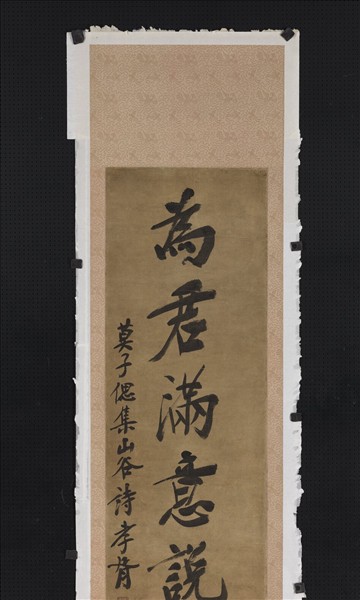 為君滿意說
莫子偲集山谷詩孝胥